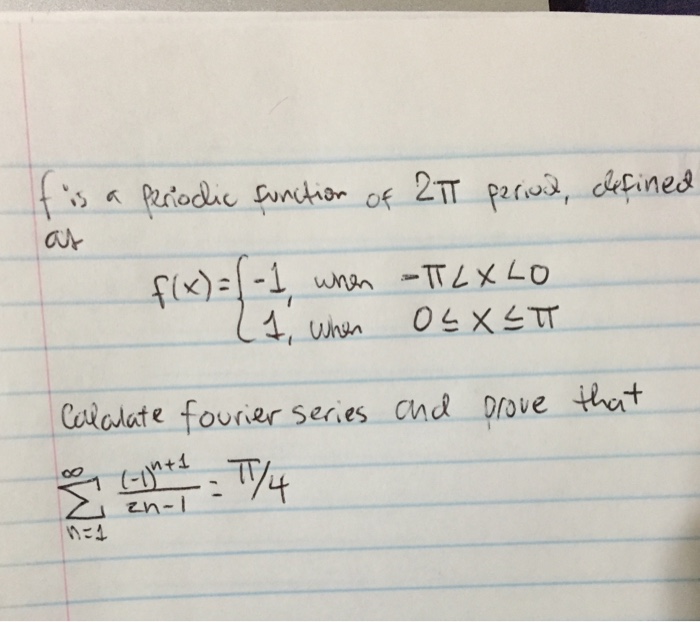 f is a periodic function of 2π period, defined
as
f(x) = { -1, when -π < x < 0
1, when 0 ≤ x ≤ π
Calculate fourier series and prove that
∞ Σ n=1 (-1)^n+1 / 2n-1 = π/4